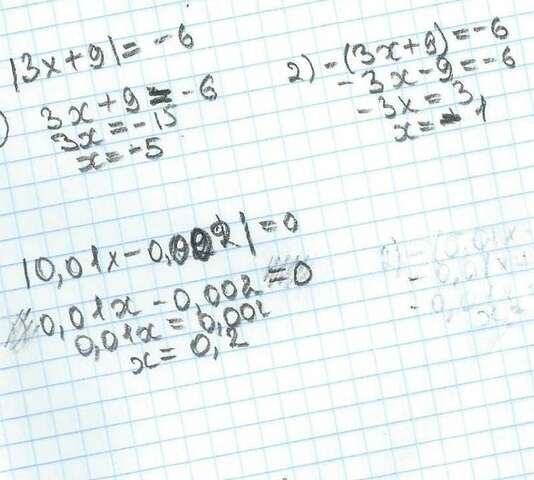 |3x+9|= -6
) 3x+9=-6
3x=-15
x=-5
2) -(3x+9)=-6
-3x-9=-6
-3x=3
x=-1
|0,01x-0,002|=0
0,01x-0,002=0
0,01x=0,002
x=0,2